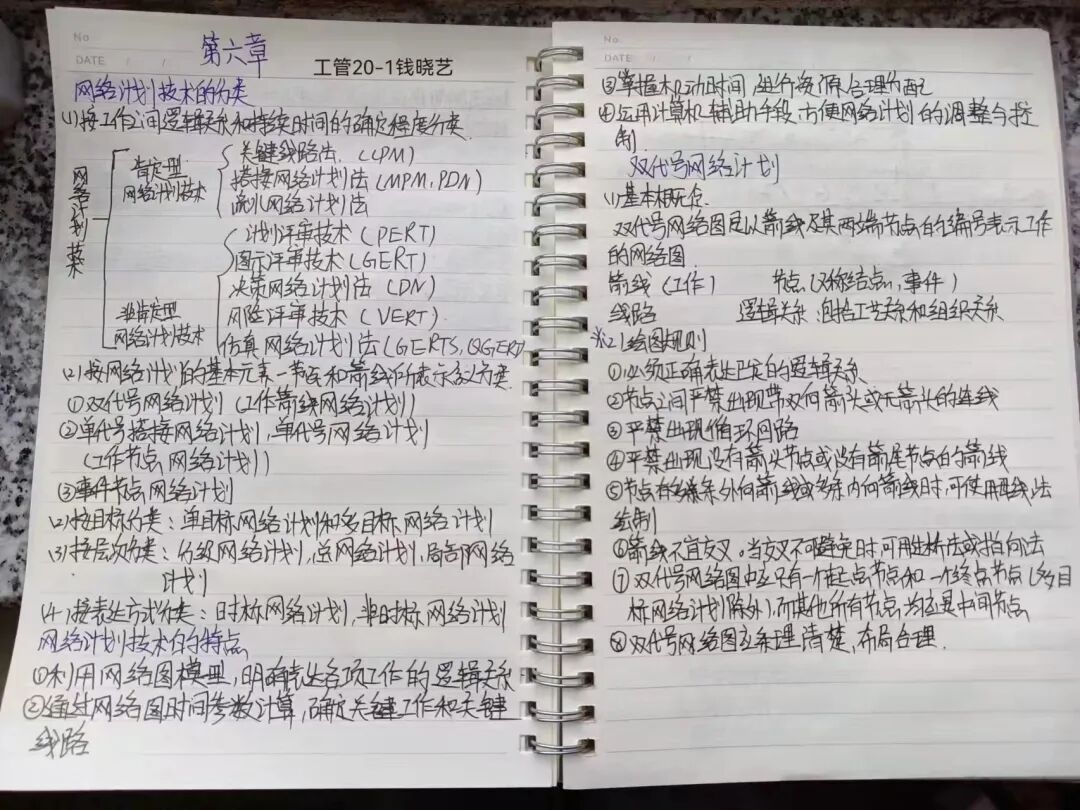 No.
DATE / /
第六章
工管20-1钱晓艺
网络计划技术的分类
(1)按工作之间逻辑关系和持续时间的确定程度分类
网络计划技术
肯定型
网络计划技术
关键线路法 (CPM)
搭接网络计划法 (MPM,PDN)
流水网络计划法
非肯定型
网络计划技术
计划评审技术 (PERT)
图示评审技术 (GERT)
决策网络计划法 (DN)
风险评审技术 (VERT)
仿真网络计划法(GERTS,QGERT)
(2)按网络计划的基本元素—节点和箭线所表示含义分类
①双代号网络计划 (工作箭线网络计划)
②单代号搭接网络计划,单代号网络计划
(工作节点网络计划)
③事件节点网络计划
(2)按目标分类:单目标网络计划和多目标网络计划
(3)按层次分类:分级网络计划,总网络计划,局部网络
计划
(4)按表达方式分类:时标网络计划,非时标网络计划
网络计划技术的特点
①利用网络图模型,明确表达各项工作的逻辑关系
②通过网络图时间参数计算,确定关键工作和关键
线路
No.
DATE / /
③掌握机动时间,进行资源合理分配
④应用计算机辅助手段,方便网络计划的调整与控
制
双代号网络计划
(1)基本概念
双代号网络图是以箭线及其两端节点的编号表示工作
的网络图
箭线(工作) 节点(又称结点,事件)
线路 逻辑关系:包括工艺关系和组织关系
※(2)绘图规则
①必须正确表达已定的逻辑关系
②节点之间严禁出现带双向箭头或无箭头的连线
③严禁出现循环回路
④严禁出现没有箭头节点或没有箭尾节点的箭线
⑤节点有多条外向箭线或多条内向箭线时,可使用母线法
绘制
⑥箭线不宜交叉。当交叉不可避免时,可用过桥法或指向法
⑦双代号网络图中应只有一个起点节点和一个终点节点(多目
标网络计划除外),而其他所有节点均应是中间节点
⑧双代号网络图应条理清楚,布局合理.